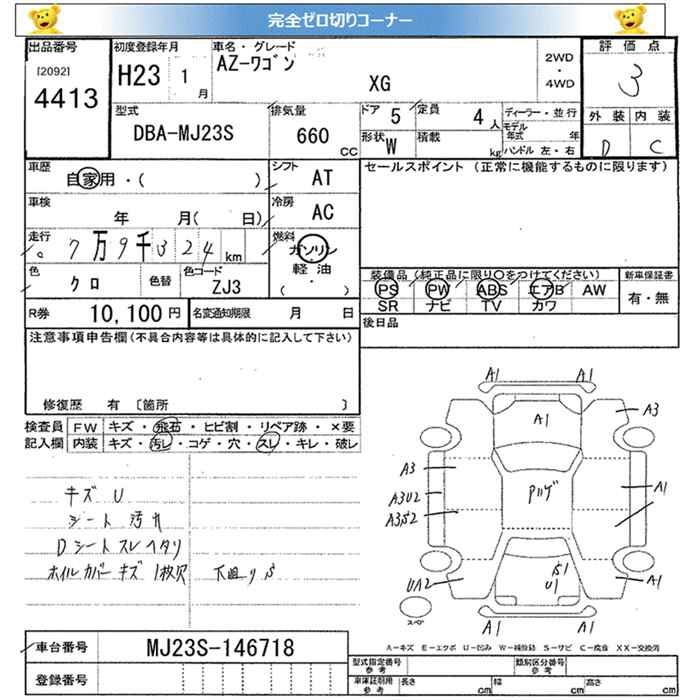 完全ゼロ切りコーナー
出品番号 [2092] 4413
初度登録年月 H23 1月
車名・グレード AZ-ワゴン XG
2WD・4WD
評価点 3
外装 D 内装 C
型式 DBA-MJ23S
排気量 660 CC
ドア 5 定員 4人
形状 W 積載 kg
ディーラー・並行
モデル年式 年
ハンドル 左・右
車歴 自家用・( )
シフト AT
セールスポイント (正常に機能するものに限ります)
車検 年 月( 日)
冷房 AC
走行 7万9千324km
燃料 ガソリン 軽油 ( ・ )
色 クロ 色替 色コード ZJ3
装備品 (純正品に限り〇をつけてください) 新車保証書
PS PW ABS エアB AW
SR ナビ TV カワ
有・無
R券 10,100円 名変通知期限 月 日
後日品
注意事項申告欄(不具合内容等は具体的に記入して下さい)
修復歴 有 〔箇所 〕
検査員記入欄
FW キズ・飛石・ヒビ割・リペア跡・×要
内装 キズ・汚レ・コゲ・穴・スレ・キレ・破レ
キズ U
シート 汚れ
Dシート スレ ヘタリ
ホイルカバー キズ 1枚欠 下廻りS
A1 A1
A1 A3
A3
A3U2 Pハゲ A1
A3S2
S1
U1
UA2 A1
スペア
A1 A1
A-キズ E-エクボ U-凹み W-補修跡 S-サビ C-腐食 XX-交換済
車台番号 MJ23S-146718
登録番号
型式指定番号 参考 類別区分番号 参考
車庫証明用 参考 長さ cm 幅 cm 高さ cm